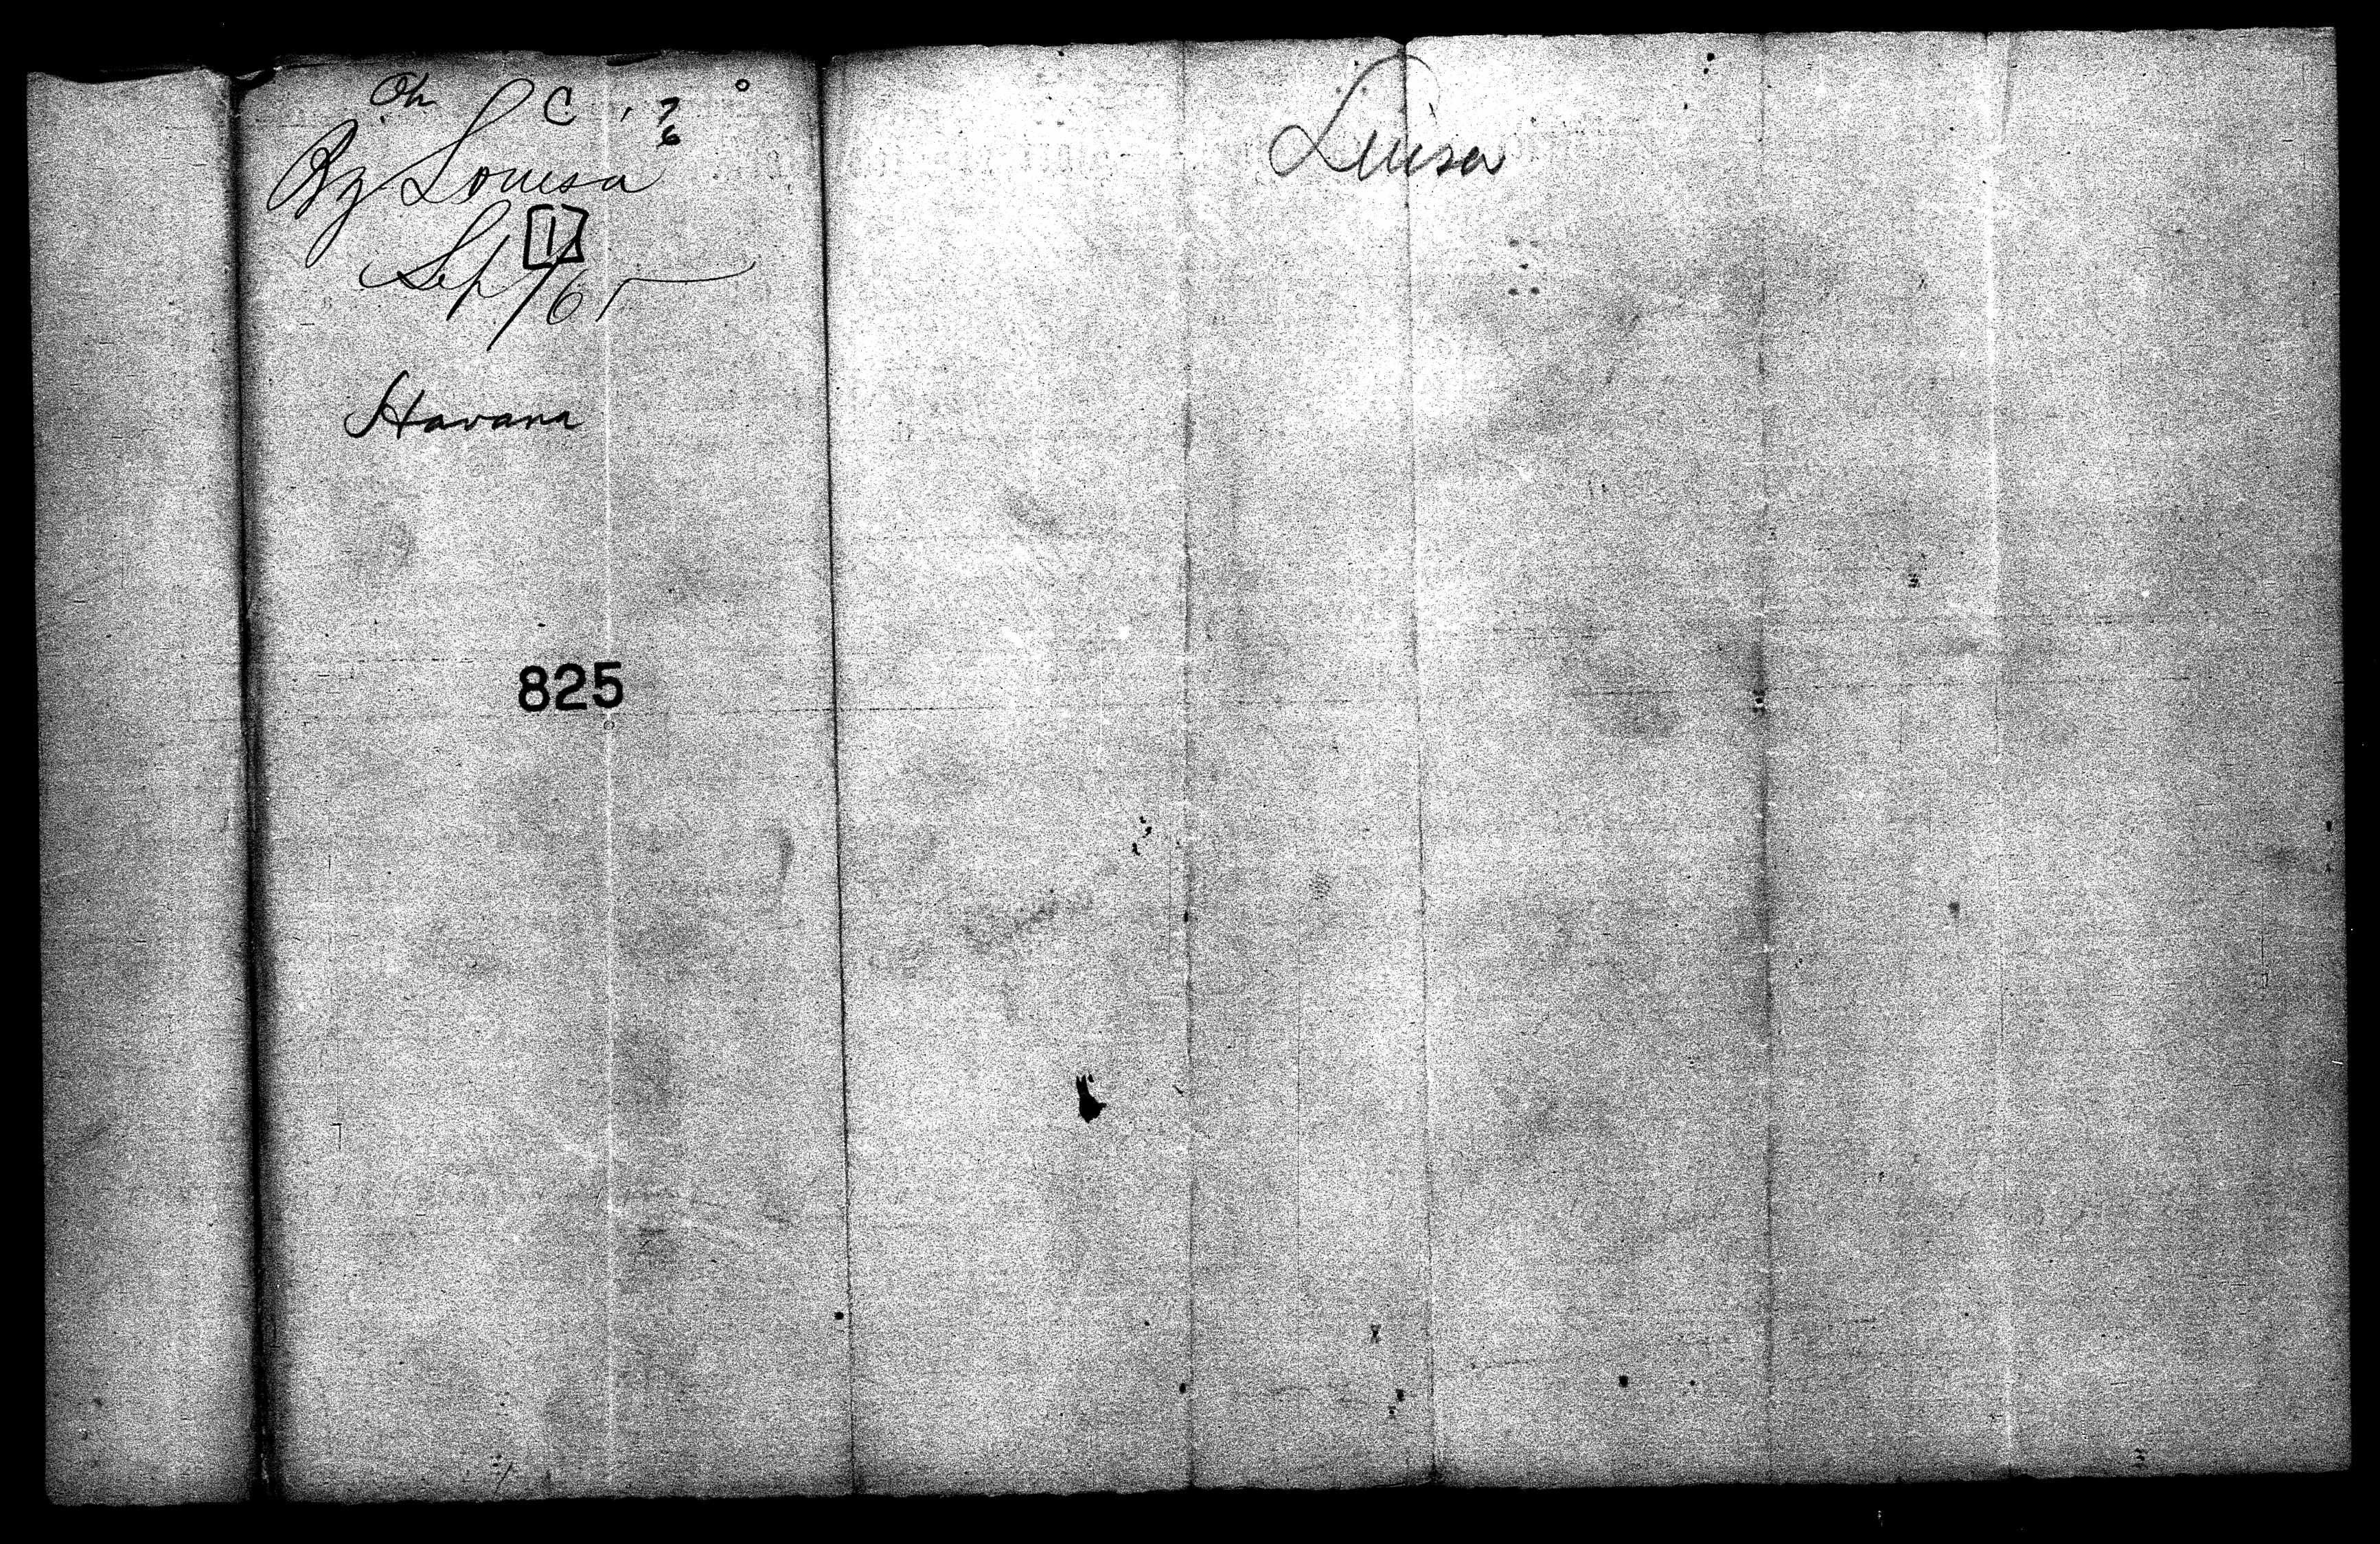 Ch C 7
6
Bg Louisa
1
Sep/65
Havana
825
Luisa